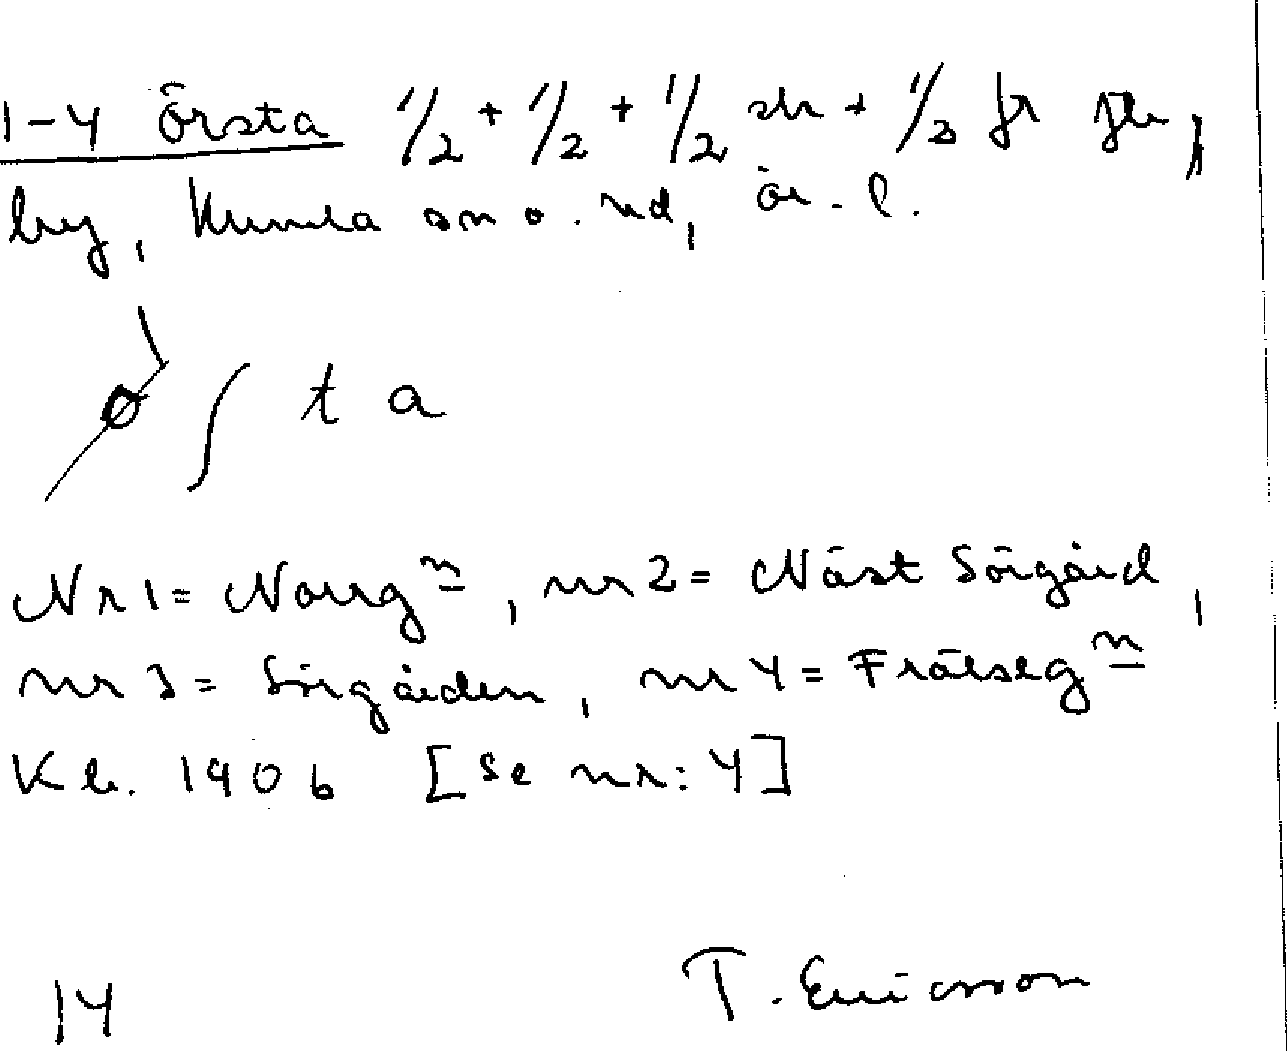 1-4 Örsta 1/2 + 1/2 + 1/2 sk + 1/3 fr fr,
by, Kumla sn o. hd, ör. l.
ta
Nr 1 = Norrg n, nr 2 = Näst Sörgård,
nr 3 = Sörgården, nr 4 = Frälseg n
Kb. 1906 [Se nr: 4]
14 T. Ericsson